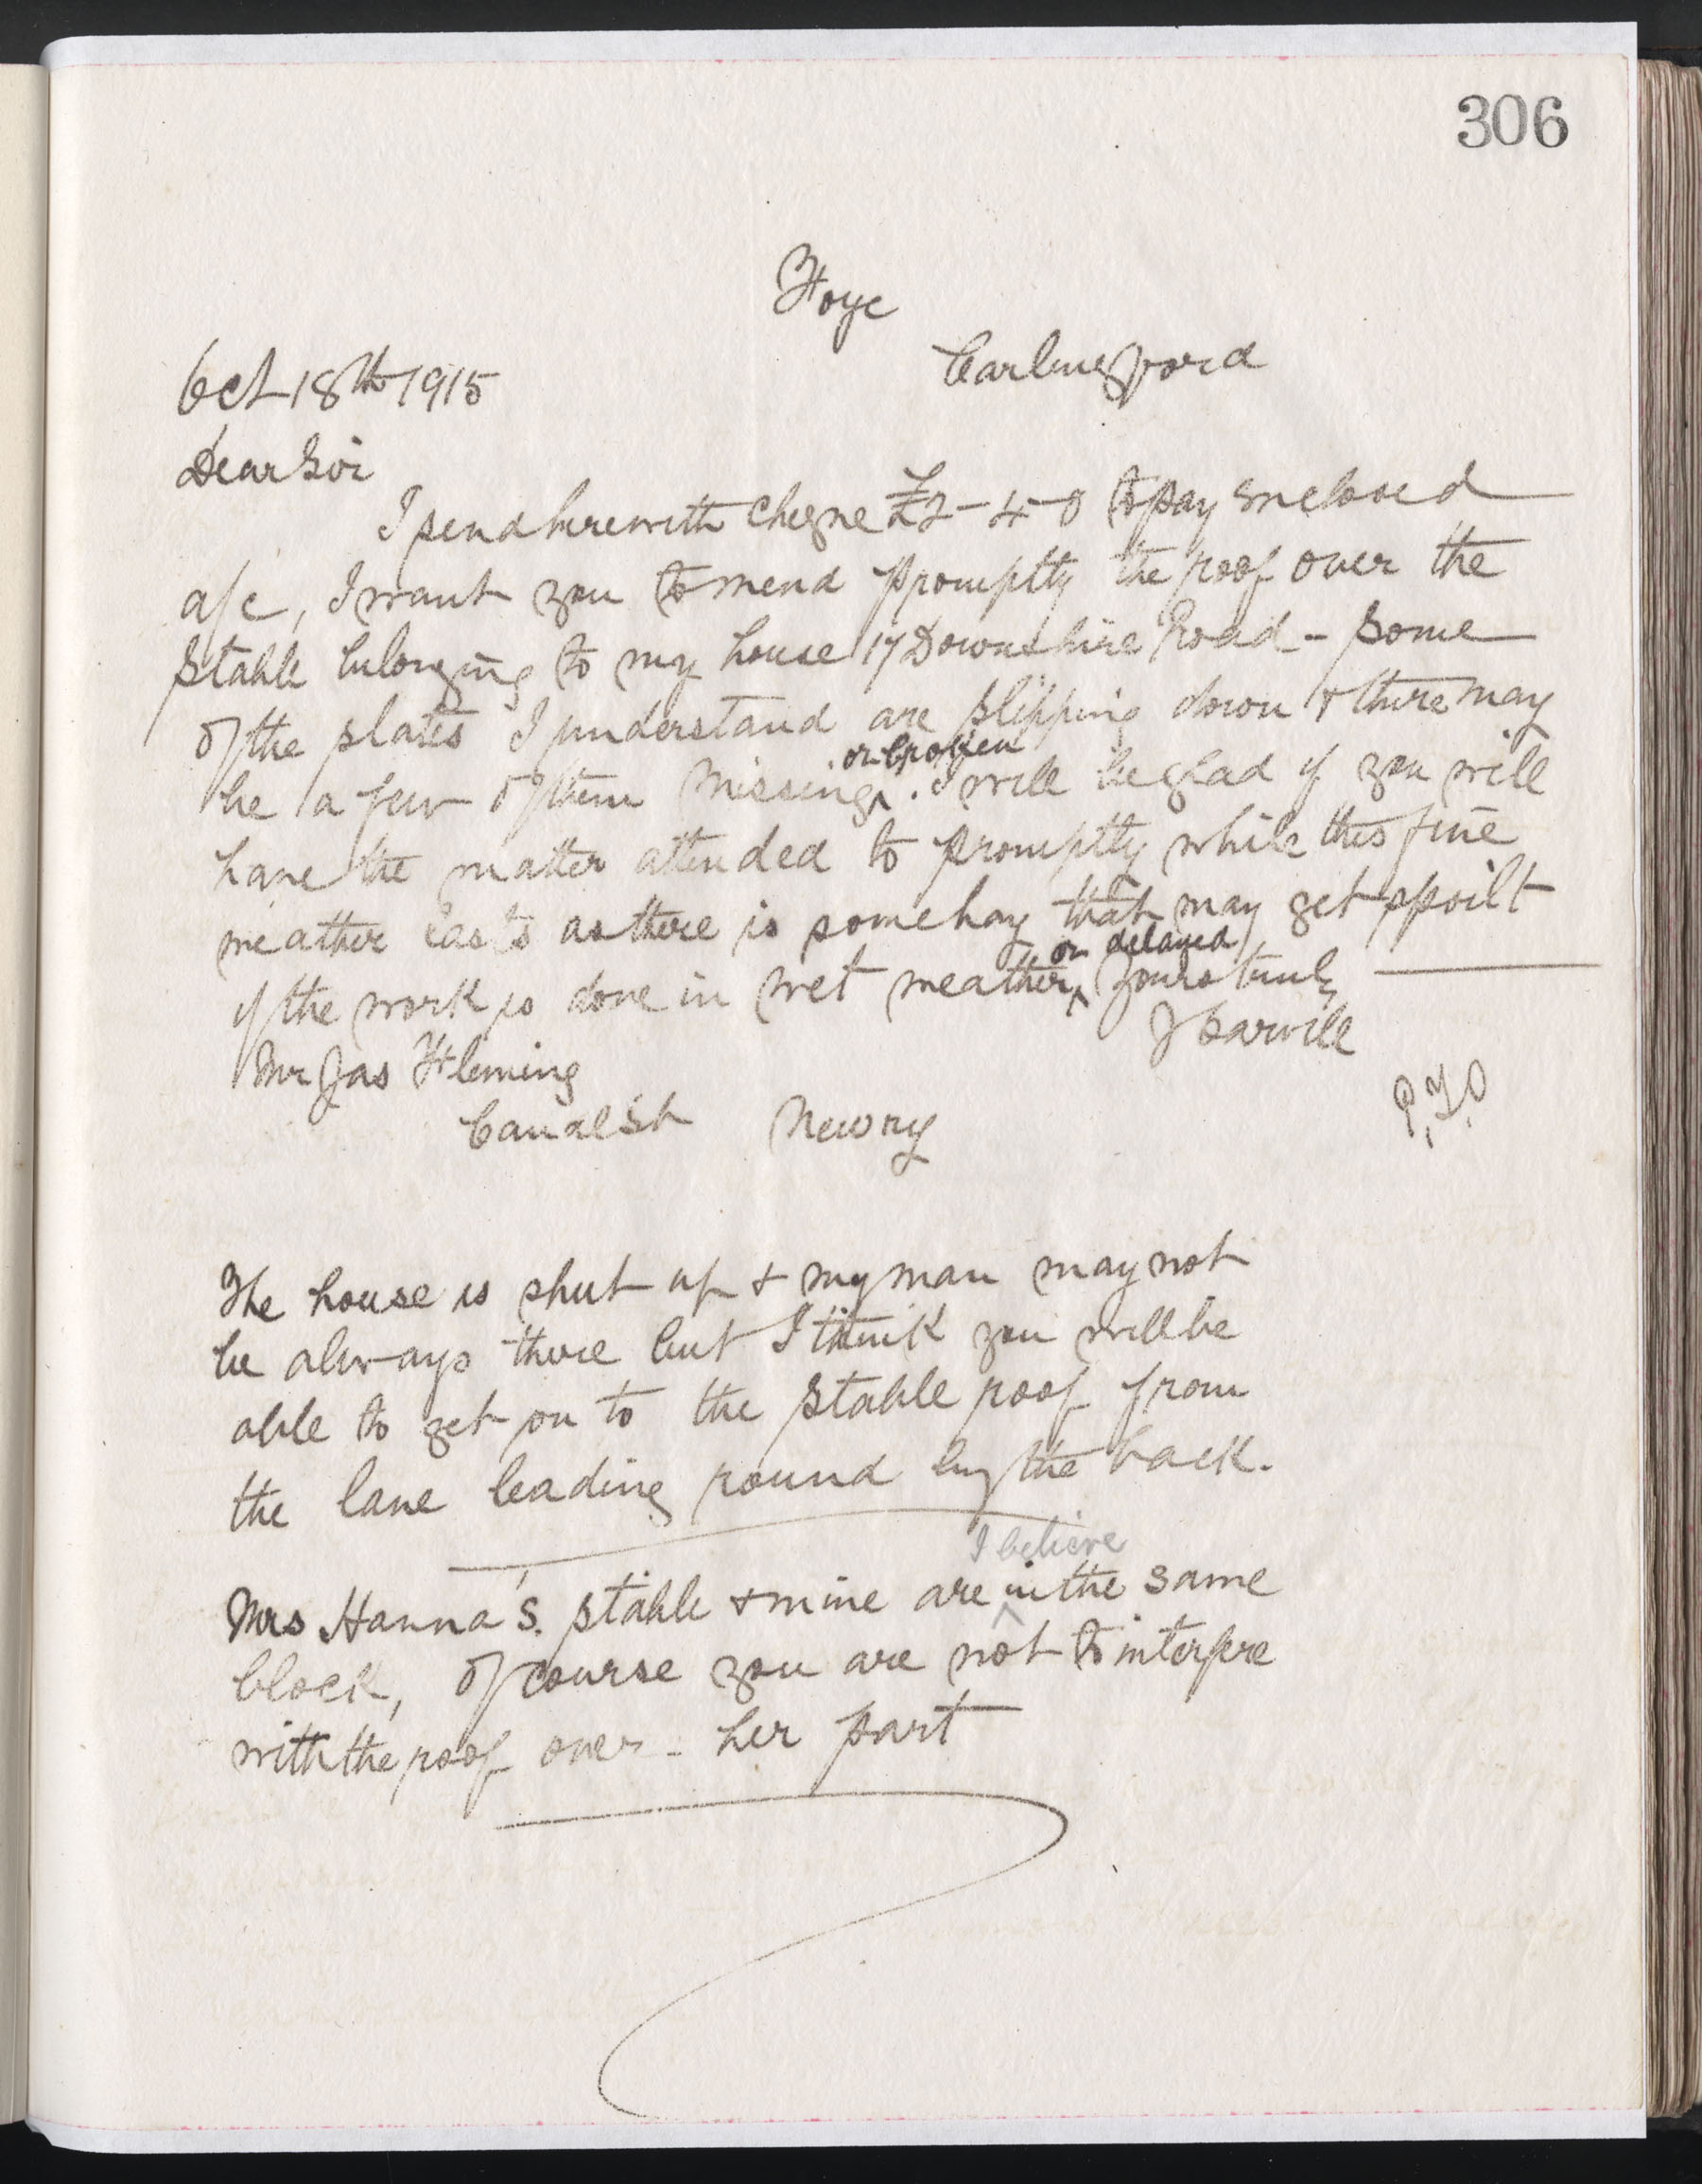 306
Foye
Carlingford
Oct 18th 1915
Dear Sir
I send herewith cheque £2-4-0 to pay enclosed
a/c, I want you to mend promptly the roof over the
stable belonging to my house 17 Downshire Road - some
of the slates I understand are slipping down & there may
be a few of them missing or broken. I will be glad if you will
have the matter attended to promptly while this fine
weather lasts as there is some hay that may get spoilt
if the work is done in wet weather, or delayed, yours truly
J Carvill
Mr Jas Fleming
Canal St Newry
P.T.O
The house is shut up & my man may not
be always there but I think you will be
able to get on to the stable roof from
the lane leading round by the back.
Mrs Hanna's. stable & mine are I believe in the same
block, of course you are not to interfere
with the roof over - her part